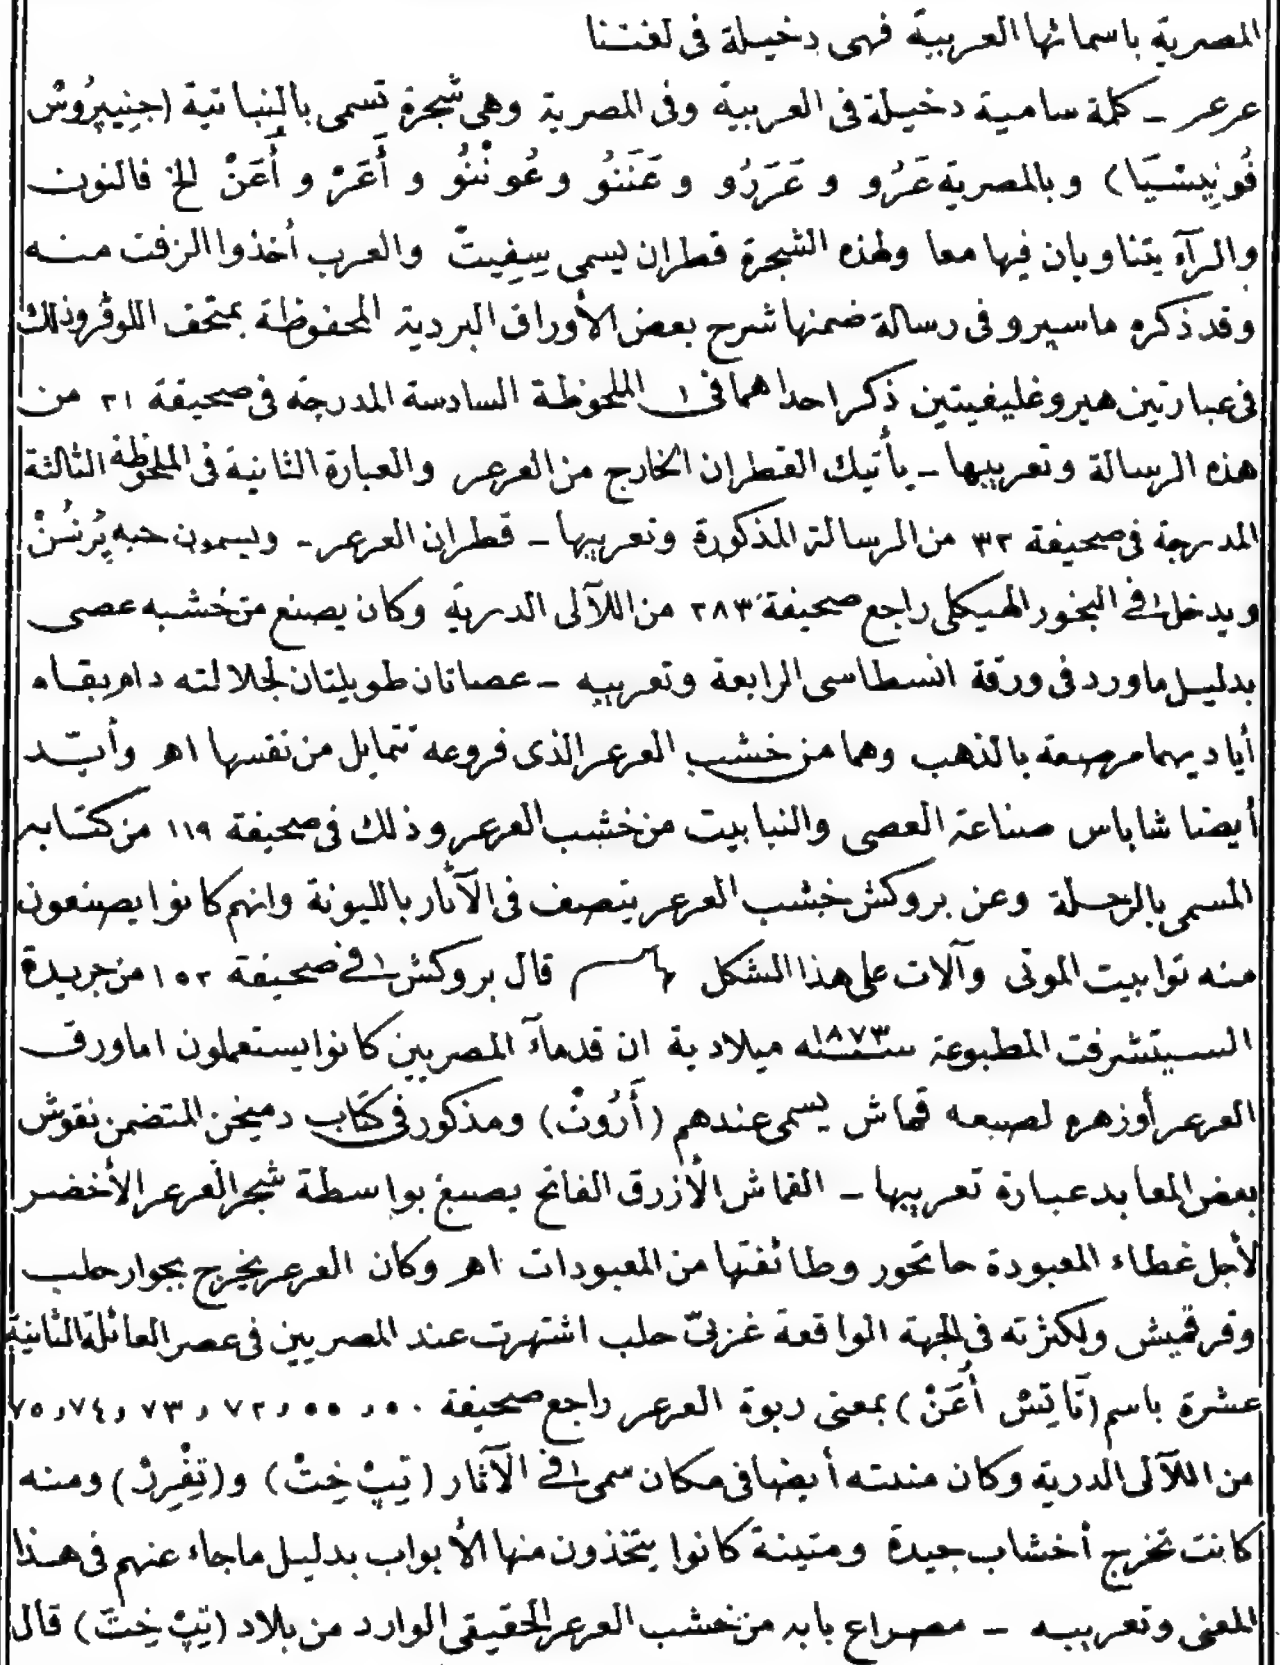 المصرية باسمائها العربية فهى دخيلة فى لغتنا
عرعر ـ كلمة سامية دخيلة فى العربية وفى المصرية وهى شجرة تسمى بالنباتية (جِنِيپِرُوسْ
فُونِيسْيَا) وبالمصرية عَرُو و عَرَرُو و عَنَنُو وعُونْنُو و أَعَرْ و أَعَنْ الخ فالنون
والرآء يتناوبان فيها معا ولهذه الشجرة قطران يسمى سِفِيتْ والعرب أخذوا الزفت منه
وقد ذكره ماسپرو فى رسالة ضمنها شرح بعض الأوراق البردية المحفوظة بمتحف اللوڤر وذلك
فى عبارتين هيروغليفيتين ذكر احداهما فى الملحوظة السادسة المدرجة فى صحيفة ٢١ من
هذه الرسالة وتعريبها ـ يأتيك القطران الخارج من العرعر والعبارة الثانية فى الملحوظة الثالثة
المدرجة فى صحيفة ٣٢ من الرسالة المذكورة وتعريبها ـ قطران العرعر ـ ويسمون حبه پُرشُنْ
ويدخل فى البخور الهيكلى راجع صحيفة ٢٨٣ من اللآلى الدرية وكان يصنع من خشبه عصى
بدليل ماورد فى ورقة انسطاسى الرابعة وتعريبه ـ عصاتان طويلتان لجلالته دام بقاه
أياديهما مرصعة بالذهب وهما من خشب العرعر الذى فروعه تتمايل من نفسها اهـ وأيّد
أيضا شاباس صناعة العصى والنبابيت من خشب العرعر وذلك فى صحيفة ١١٩ من كتابه
المسمى بالرحلة وعن بروكش خشب العرعر يتصف فى الآثار بالليونة وانهم كانوا يصنعون
منه توابيت الموتى وآلات على هذا الشكل قال بروكش فى صحيفة ١٥٢ من جريدة
السيتشرفت المطبوعة سنة ١٨٧٣ ميلادية ان قدمآء المصريين كانوا يستعملون اما ورق
العرعر أو زهره لصبعه قماش يسمى عندهم (أَرُوتْ) ومذكور فى كتاب دميخن المتضمن نقوش
بعض المعابد عبارة تعريبها ـ القماش الأزرق الفاتح يصبغ بواسطة شجر العرعر الأخضر
لأجل غطاء المعبودة حاتحور وطائفتها من المعبودات اهـ وكان العرعر يخرج بجوار حلب
وقرقميش ولكثرته فى الجهة الواقعة غربىّ حلب اشتهرت عند المصريين فى عصر العائلة الثانية
عشرة باسم (تَاتِسْ أَعَنْ) بمعنى ربوة العرعر راجع صحيفة ٥٠ ، ٥٥ ، ٧٢ ، ٧٣ ، ٧٤ ، ٧٥
من اللآلى الدرية وكان منبته أيضا فى مكان سمى فى الآثار (تِپْ خِتْ) و(تِفْرِرْ) ومنه
كانت تخرج أخشاب جيدة ومتينة كانوا يتخذون منها الأبواب بدليل ماجاء عنهم فى هذا
المعنى وتعريبه ـ مصراع بابه من خشب العرعر الحقيقى الوارد من بلاد (تِپْ خِتَ) قال